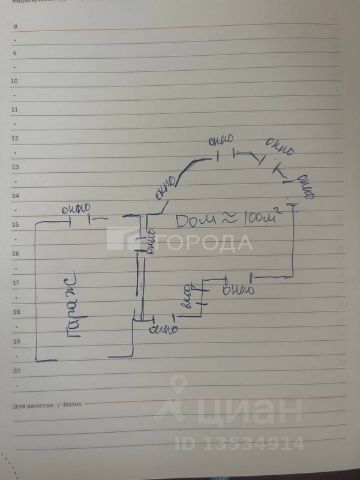 8
9
10
11
12
13
14
15
16
17
18
19
20
окно
окно
окно
окно
окно
окно
Дом ≈ 100м²
окно
ГОРОДА
гараж
вход
окно
окно
Для заметок / Notes
циан
ID 13534914